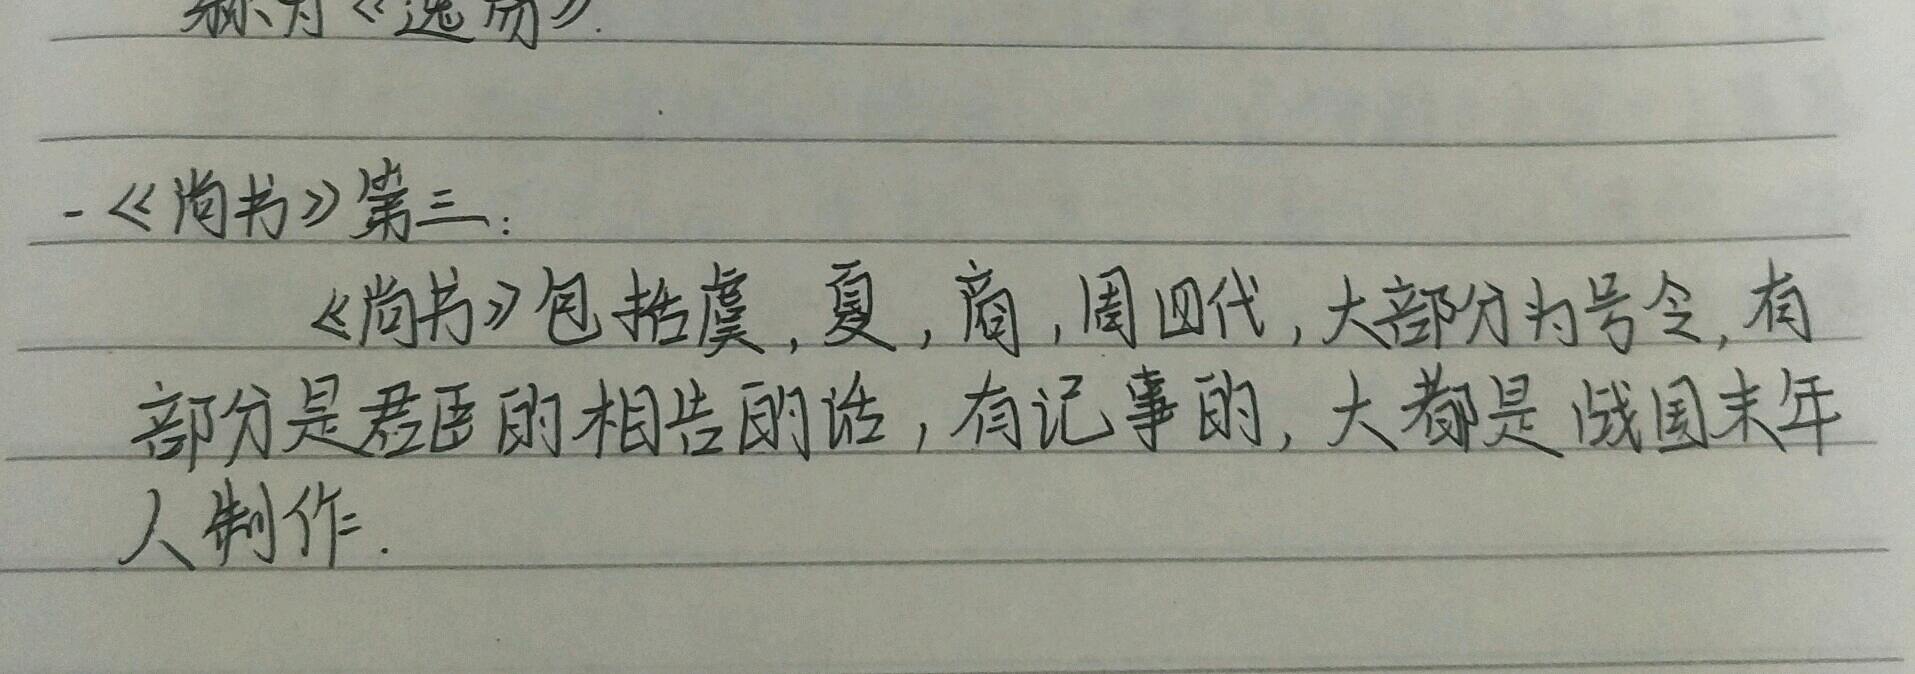 称为《逸易》.
-《尚书》第三:
《尚书》包括虞,夏,商,周四代,大部分为号令,有
部分是君臣的相告的话,有记事的,大都是战国末年
人制作.